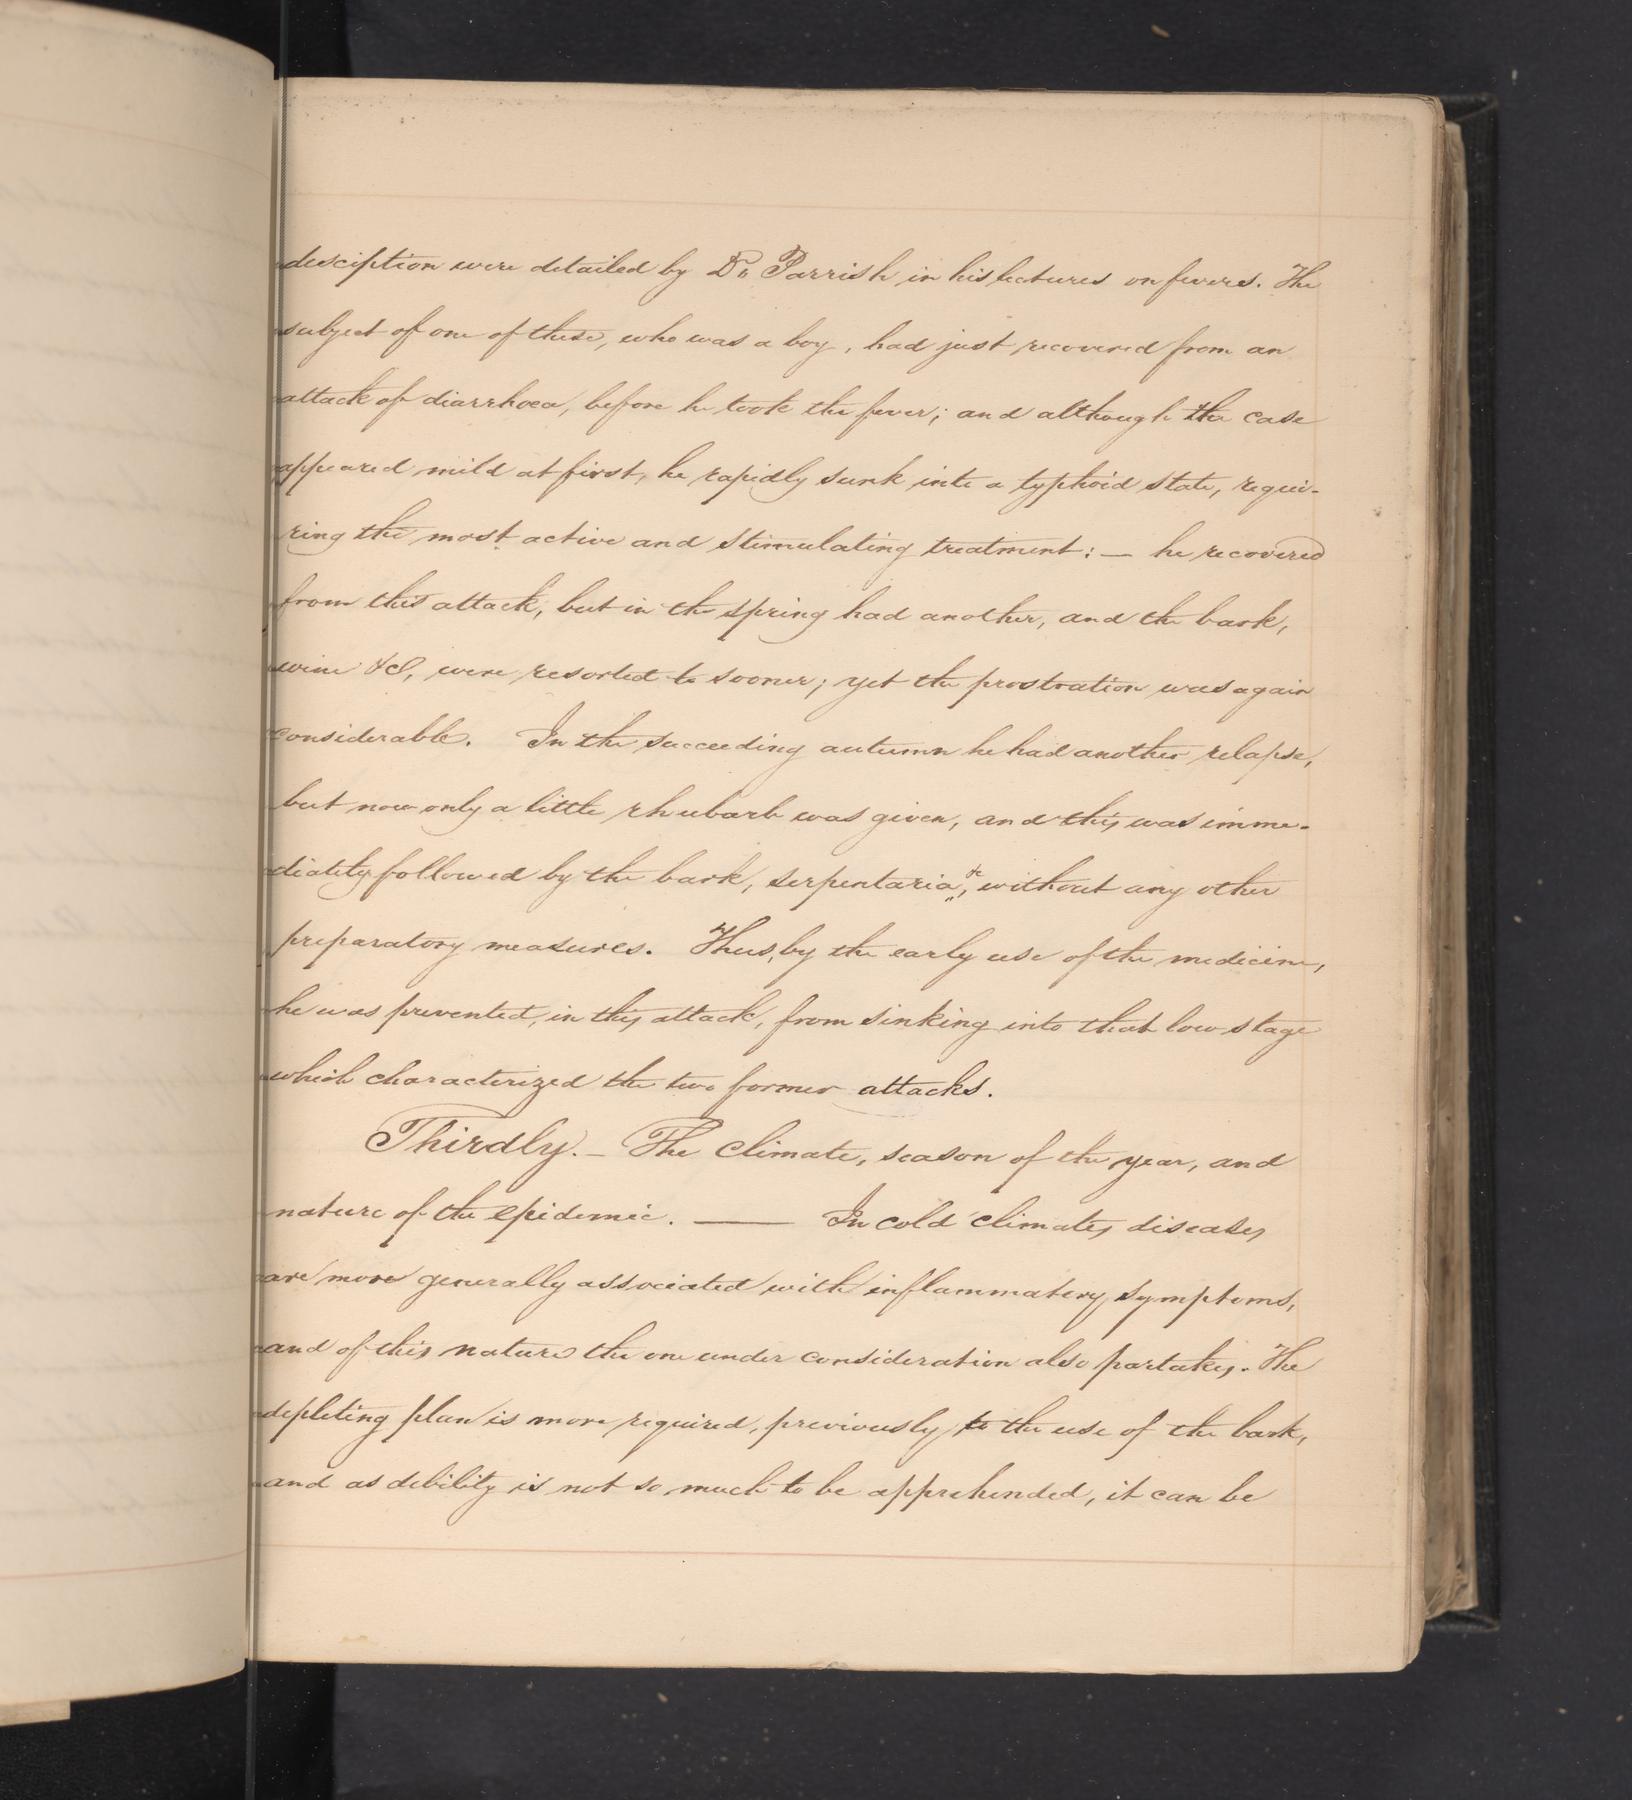 desciption were detailed by Dr. Parrish in his lectures on fevers. The
subject of one of these, who was a boy, had just recovered from an
attack of diarrhoea, before he took the fever; and although the case
appeared mild at first, he rapidly sunk into a typhoid state, requi-
ring the most active and stimulating treatment: — he recovered
from this attack, but in the spring had another, and the bark,
wine &c, were resorted to sooner; yet the prostration was again
considerable. In the succeeding autumn he had another relapse,
but now only a little rhubarb was given, and this was imme-
diately followed by the bark, serpentaria, &c, without any other
preparatory measures. Thus, by the early use of the medicine,
he was prevented, in this attack, from sinking into that low stage
which characterized the two former attacks.
Thirdly. — The climate, season of the year, and
nature of the epidemic. — In cold climates diseases
are more generally associated with inflammatory symptoms,
and of this nature the one under consideration also partakes. The
depleting plan is more required, previously to the use of the bark,
and as debility is not so much to be apprehended, it can be